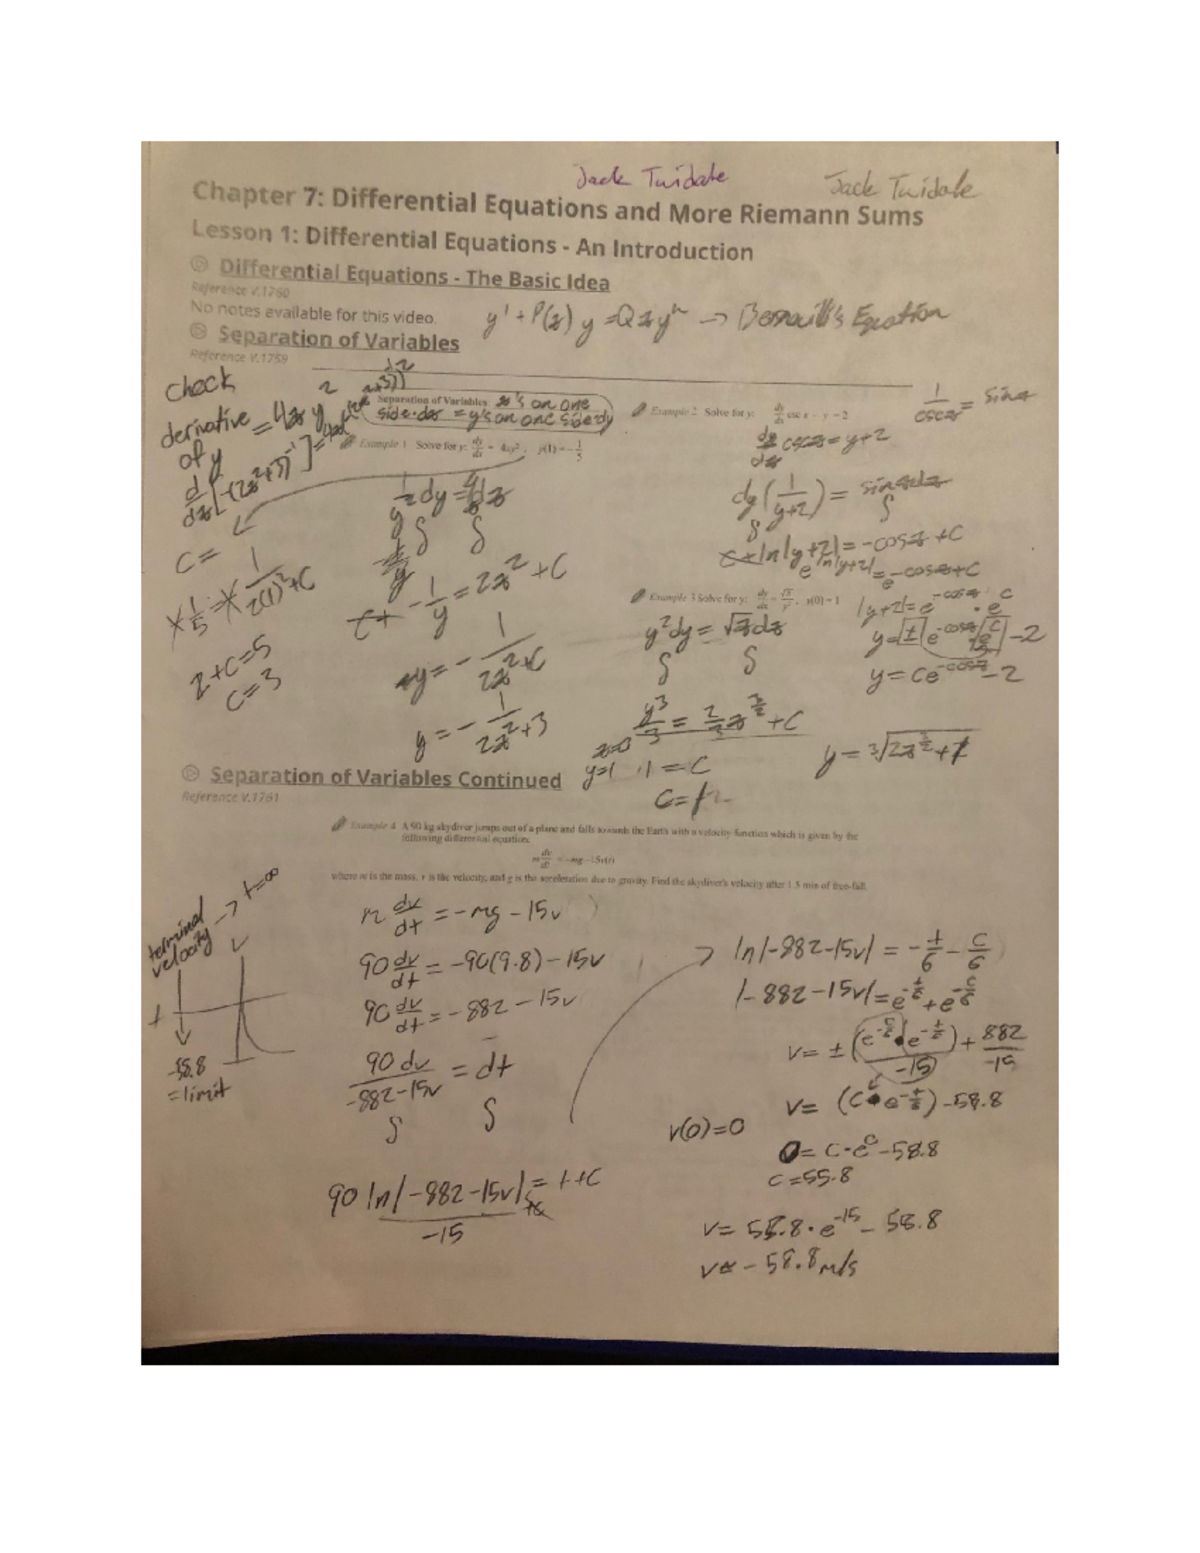 Jack Twidale
Jack Twidale
Chapter 7: Differential Equations and More Riemann Sums
Lesson 1: Differential Equations - An Introduction
Differential Equations - The Basic Idea
Reference V.1760
No notes available for this video.
y' + P(x) y = Q x y^n → Bernoulli's Equation
Separation of Variables
Reference V.1759
check
derivative = 4x y^2
of y
d/dx[-(2x^2+3)^-1] =
Separation of Variables: x's on one
side·dx = y's on one side dy
Example 1 Solve for y: dy/dx = 4xy^2, y(1) = -1/5
C =
1/5 = 1/(2(1)^2+C)
2+C=5
C=3
∫ ∫
-1/y = 2x^2 + C
y = - 1/(2x^2+C)
y = - 1/(2x^2+3)
Example 2 Solve for y: dy/dx csc x - y = 2
1/cscx = sinx
dy/dx cscx = y+2
dy(1/(y+2)) = sinxdx
∫ ∫
ln|y+2| = -cosx + C
e^ln|y+2| = e^-cosx+C
|y+2| = e^-cosx · e^C
y = ± e^-cosx e^C - 2
y = Ce^-cosx - 2
Example 3 Solve for y: dy/dx = √x/y^2, y(0) = 1
y^2dy = √x dx
∫ ∫
y^3/3 = 2/3 x^3/2 + C
x=0
y=1
C=
Separation of Variables Continued
Reference V.1761
Example 4 A 90 kg skydiver jumps out of a plane and falls towards the Earth with a velocity function which is given by the
following differential equation:
m dv/dt = -mg - 15v(t)
where m is the mass, v is the velocity, and g is the acceleration due to gravity. Find the skydiver's velocity after 1.5 min of free-fall.
terminal velocity → t=∞
v
t
-58.8
= limit
m dv/dt = -mg - 15v
90 dv/dt = -90(9.8) - 15v
90 dv/dt = -882 - 15v
90 dv/(-882-15v) = dt
∫ ∫
90 ln|-882-15v|/-15 = t+C
→ ln|-882-15v| = -t/6 - C/6
|-882-15v| = e^-t/6 + e^-C/6
v = ± (e^-C/6 · e^-t/6)/(-15) + 882/-15
v = (C · e^-t/6) - 58.8
v(0)=0
0 = C·e^0 - 58.8
C = 58.8
v = 58.8 · e^-15 - 58.8
v ≈ - 58.8 m/s